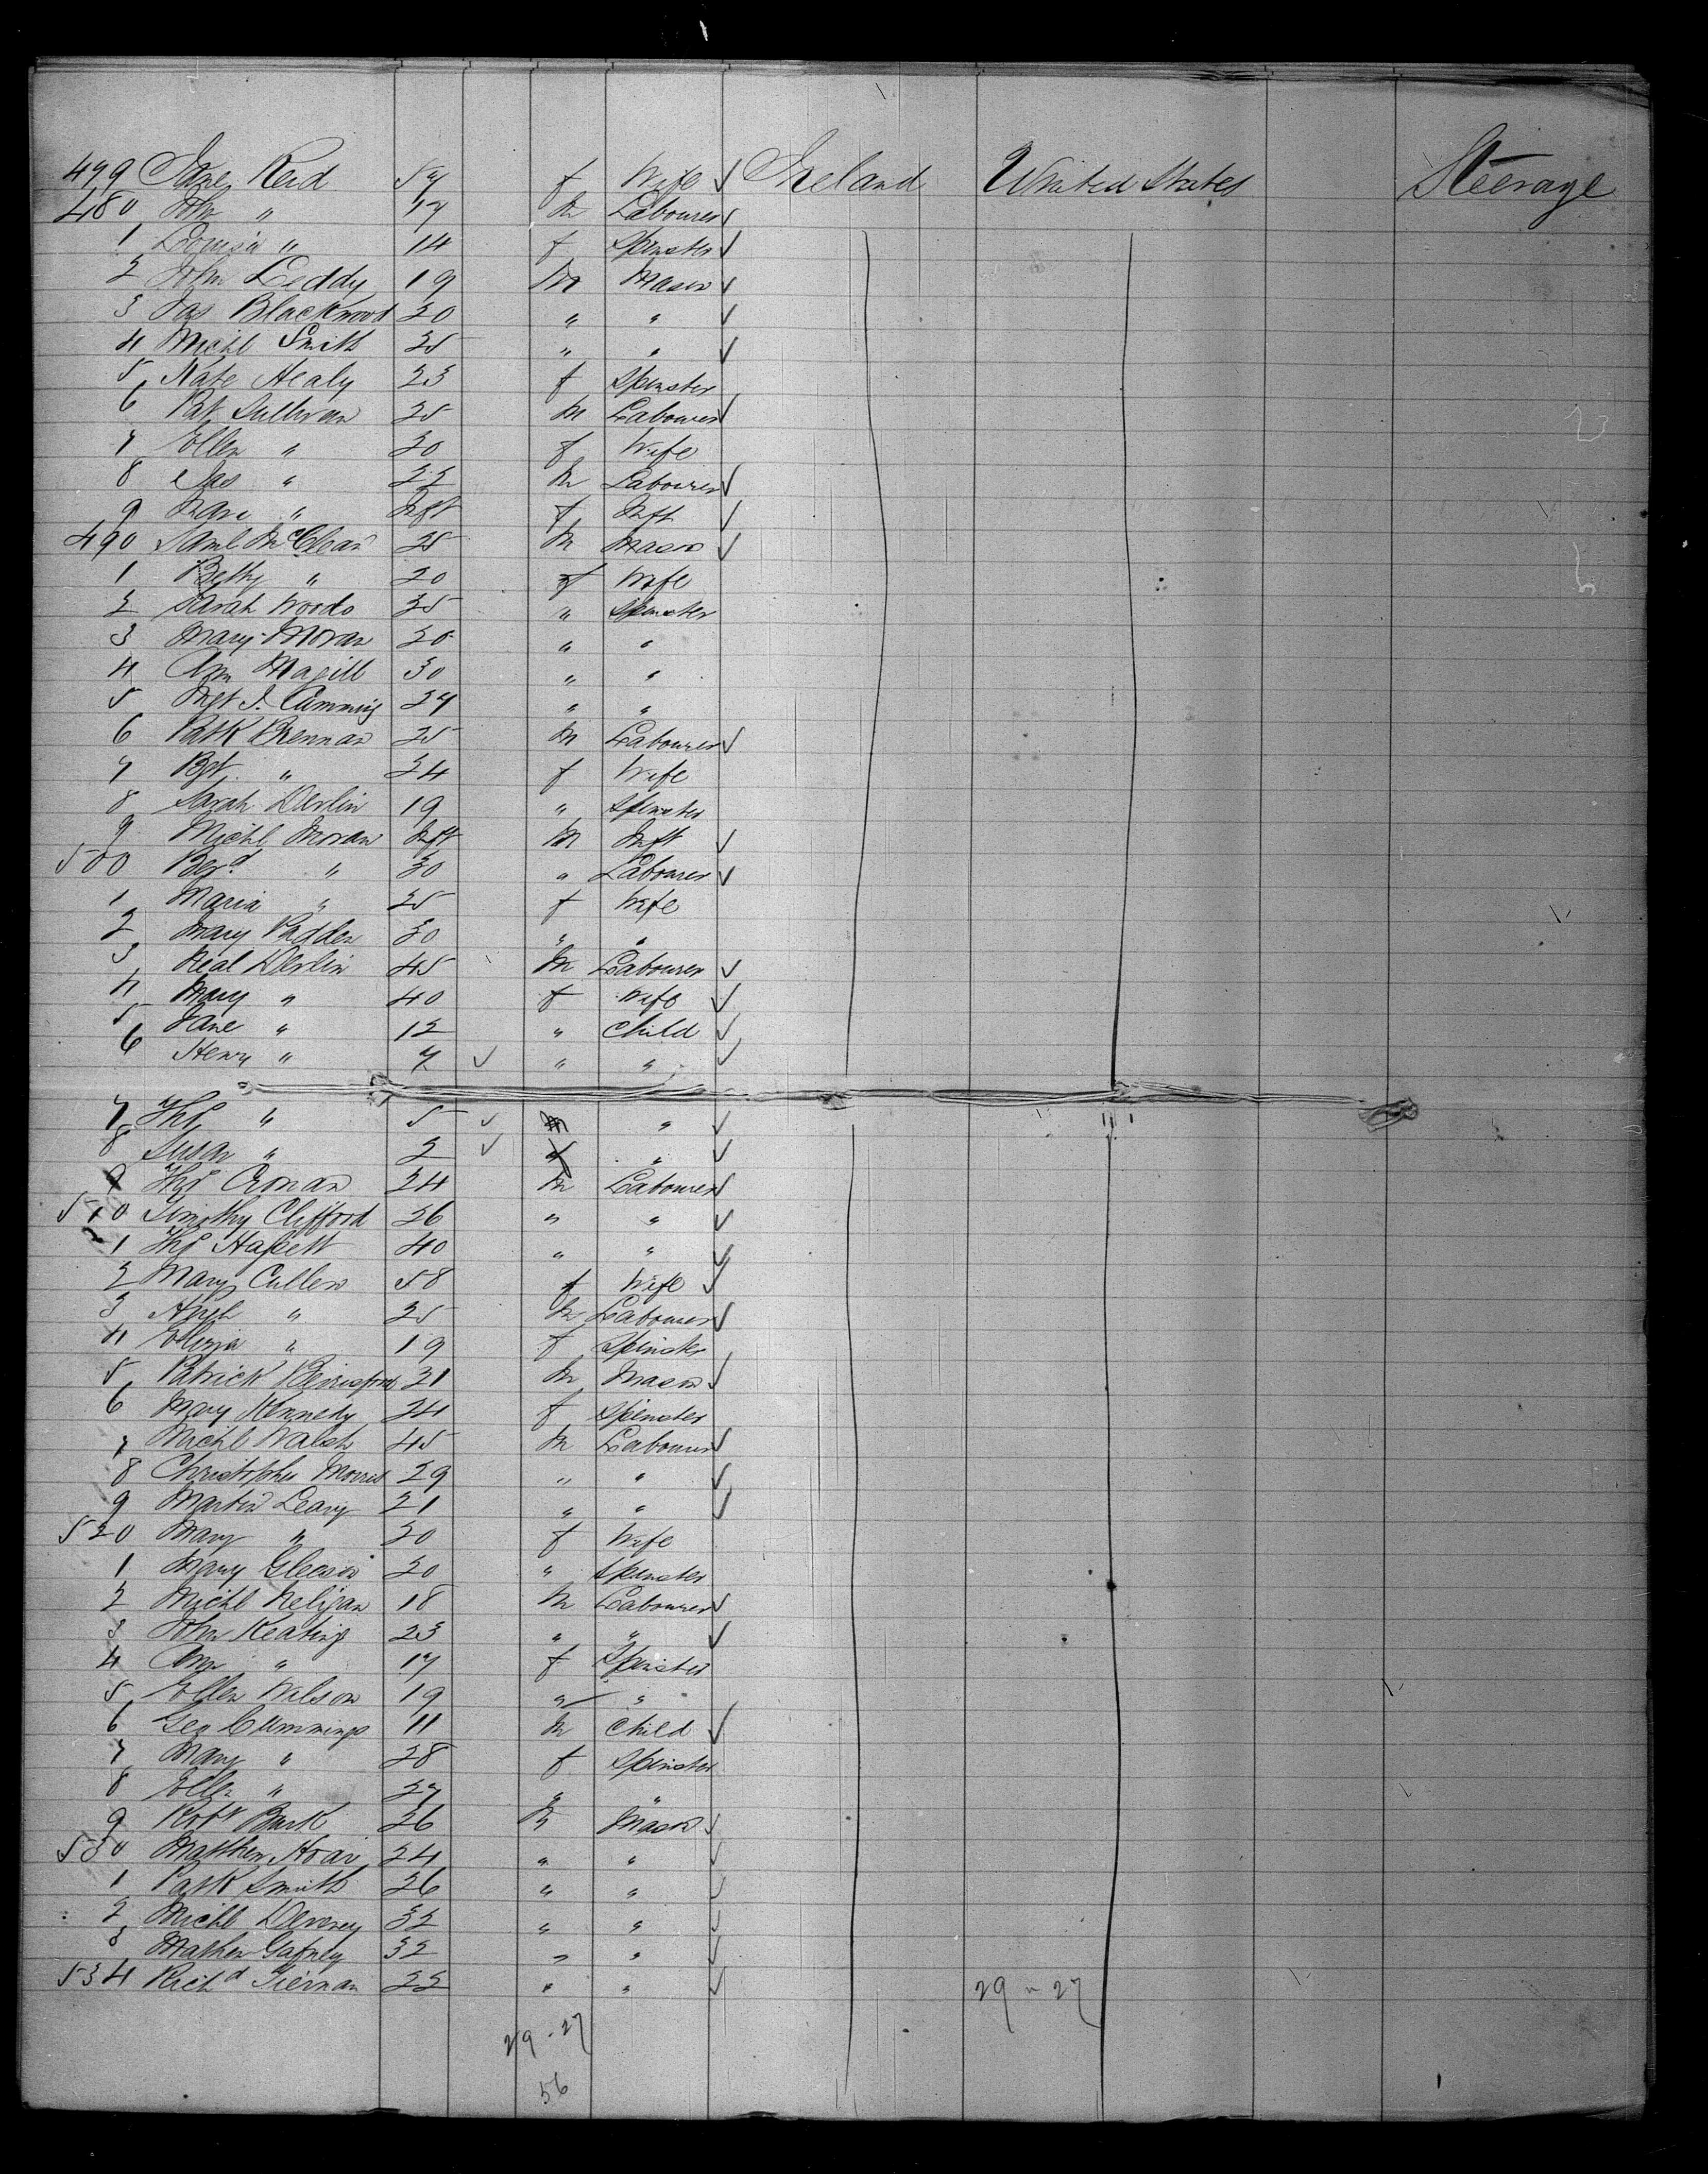 479 Jane Reid 57 f Wife ✓ Ireland United States Steerage
480 Jno " 17 m Labourer ✓
1 Louisa " 14 f Spinster ✓
2 John Leddy 19 m Mason ✓
3 Jas Blackwood 20 " " ✓
4 Michl Smith 25 " " ✓
5 Kate Healy 23 f Spinster
6 Pat Sullivan 25 m Labourer ✓
7 Ellen " 20 f Wife
8 Jas " 22 m Labourer ✓
9 " Inft f Inft ✓
490 Saml McClean 25 m Mason ✓
1 Betty " 20 f Wife
2 Sarah Woods 25 " Spinster
3 Mary Moran 20 " "
4 Ann Magill 30 " "
5 Mgt J. Cumming 27 " "
6 Patk Brennan 25 m Labourer ✓
7 Bgt " 24 f Wife
8 Sarah Devlin 19 " Spinster
9 Michl Moran Inft m Inft ✓
500 Berd " 30 " Labourer ✓
1 Maria " 25 f Wife
2 Mary Padden 30 " "
3 Neal Devlin 45 m Labourer ✓
4 Mary " 40 f Wife ✓
5 Jane " 12 " Child ✓
6 Henry " 7 ✓ " " ✓
7 Ths " 5 ✓ m " ✓
8 Susan " 2 ✓ f " ✓
9 Ths Cronan 24 m Labourer ✓
510 Timothy Clifford 26 " " ✓
1 Ths 40 " " ✓
2 Mary Cullen 58 f Wife ✓
3 " 25 m Labourer ✓
4 Eliza " 19 f Spinster
5 Patrick 21 m Mason ✓
6 Mary Kennedy 24 f Spinster
7 Michl Walsh 45 m Labourer ✓
8 Christopher Morris 29 " " ✓
9 Martin Leary 21 " " ✓
520 Mary " 20 f Wife
1 Mary Gleeson 20 " Spinster
2 Michl Neligan 18 m Labourer ✓
3 John Keating 23 " " ✓
4 Ann " 17 f Spinster
5 Ellen Wilson 19 " "
6 Geo Cummings 11 m Child ✓
7 Mary " 28 f Spinster
8 Ellen " 27 " "
9 Robt Burk 26 m Mason ✓
530 Matthew Hoar 24 " " ✓
1 Patk Smith 26 " " ✓
2 Michl 32 " " ✓
3 Mathew Gafney 32 " " ✓
534 Richd Tiernan 22 " " ✓ 29 - 27
29 - 27
56